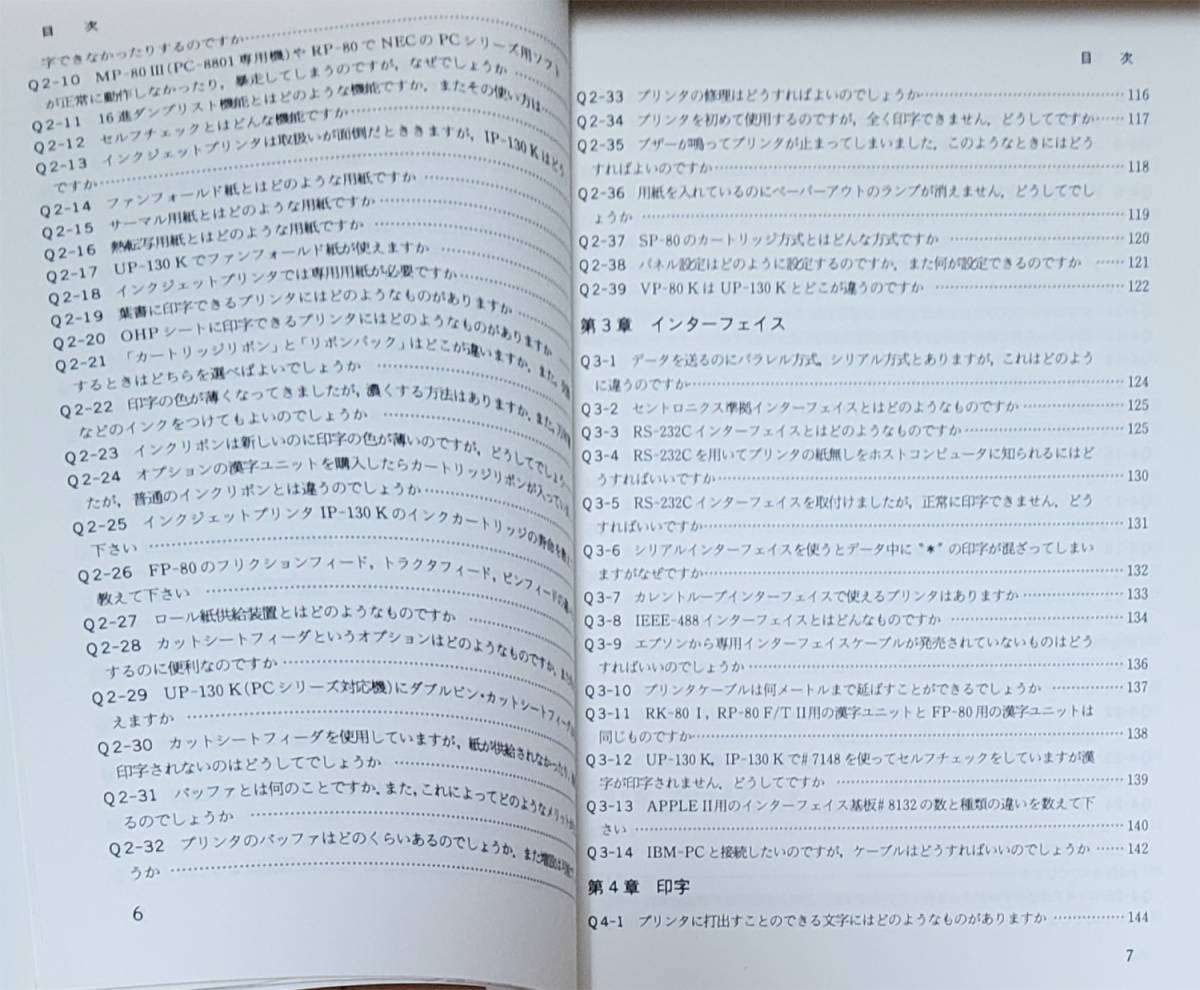 目 次
字できなかったりするのですか
Q2-10 MP-80Ⅲ(PC-8801専用機)や RP-80で NECの PCシリーズ用ソフト
が正常に動作しなかったり，暴走してしまうのですが，なぜでしょうか
Q2-11 16進ダンプリスト機能とはどのような機能ですか．またその使い方は
Q2-12 セルフチェックとはどんな機能ですか
Q2-13 インクジェットプリンタは取扱いが面倒だとききますが，IP-130Kはどう
ですか
Q2-14 ファンフォールド紙とはどのような用紙ですか
Q2-15 サーマル用紙とはどのような用紙ですか
Q2-16 熱転写用紙とはどのような用紙ですか
Q2-17 UP-130Kでファンフォールド紙が使えますか
Q2-18 インクジェットプリンタでは専用用紙が必要ですか
Q2-19 葉書に印字できるプリンタにはどのようなものがありますか
Q2-20 OHPシートに印字できるプリンタにはどのようなものがありますか
Q2-21 「カートリッジリボン」と「リボンパック」はどこが違いますか．また，
するときはどちらを選べばよいでしょうか
Q2-22 印字の色が薄くなってきましたが，濃くする方法はありますか．また，
などのインクをつけてもよいのでしょうか
Q2-23 インクリボンは新しいのに印字の色が薄いのですが，どうしてでしょ
Q2-24 オプションの漢字ユニットを購入したらカートリッジリボンが入ってい
たが，普通のインクリボンとは違うのでしょうか
Q2-25 インクジェットプリンタ IP-130Kのインクカートリッジの寿命を
下さい
Q2-26 FP-80のフリクションフィード，トラクタフィード，ピンフィードの
教えて下さい
Q2-27 ロール紙供給装置とはどのようなものですか
Q2-28 カットシートフィーダというオプションはどのようなものですか．また
するのに便利なのですか
Q2-29 UP-130K(PCシリーズ対応機)にダブルビン・カットシートフィーダ
えますか
Q2-30 カットシートフィーダを使用していますが，紙が供給されなかったり，
印字されないのはどうしてでしょうか
Q2-31 バッファとは何のことですか．また，これによってどのようなメリット
るのでしょうか
Q2-32 プリンタのバッファはどのくらいあるのでしょうか．また増設は可能
うか
6
目 次
Q2-33 プリンタの修理はどうすればよいのでしょうか……116
Q2-34 プリンタを初めて使用するのですが，全く印字できません．どうしてですか……117
Q2-35 ブザーが鳴ってプリンタが止まってしまいました．このようなときにはどう
すればよいのですか……118
Q2-36 用紙を入れているのにペーパーアウトのランプが消えません．どうしてでし
ょうか……119
Q2-37 SP-80のカートリッジ方式とはどんな方式ですか……120
Q2-38 パネル設定はどのように設定するのですか，また何が設定できるのですか……121
Q2-39 VP-80Kは UP-130Kとどこが違うのですか……122
第3章 インターフェイス
Q3-1 データを送るのにパラレル方式，シリアル方式とありますが，これはどのよう
に違うのですか……124
Q3-2 セントロニクス準拠インターフェイスとはどのようなものですか……125
Q3-3 RS-232Cインターフェイスとはどのようなものですか……125
Q3-4 RS-232Cを用いてプリンタの紙無しをホストコンピュータに知られるにはど
うすればいいですか……130
Q3-5 RS-232Cインターフェイスを取付けましたが，正常に印字できません．どう
すればいいですか……131
Q3-6 シリアルインターフェイスを使うとデータ中に"＊"の印字が混ざってしまい
ますがなぜですか……132
Q3-7 カレントループインターフェイスで使えるプリンタはありますか……133
Q3-8 IEEE-488インターフェイスとはどんなものですか……134
Q3-9 エプソンから専用インターフェイスケーブルが発売されていないものはどう
すればいいのでしょうか……136
Q3-10 プリンタケーブルは何メートルまで延ばすことができるでしょうか……137
Q3-11 RK-80Ⅰ，RP-80F/TⅡ用の漢字ユニットと FP-80用の漢字ユニットは
同じものですか……138
Q3-12 UP-130K，IP-130Kで#7148を使ってセルフチェックをしていますが漢
字が印字されません．どうしてですか……139
Q3-13 APPLE Ⅱ用のインターフェイス基板#8132の数と種類の違いを数えて下
さい……140
Q3-14 IBM-PCと接続したいのですが，ケーブルはどうすればいいのでしょうか……142
第4章 印字
Q4-1 プリンタに打出すことのできる文字にはどのようなものがありますか……144
7